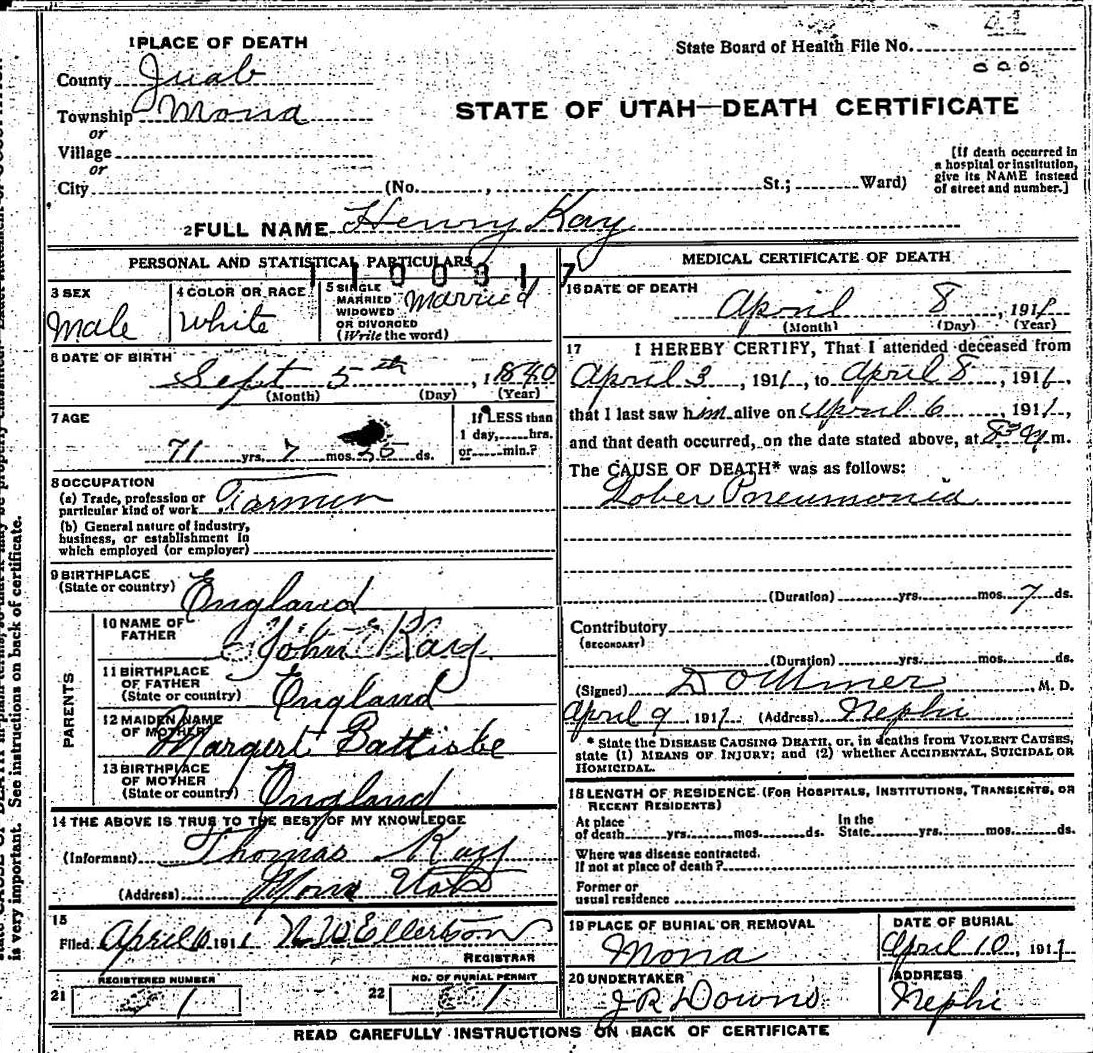 1 PLACE OF DEATH
County Juab
Township Mona
or
Village
or
City (No. , St.; Ward)
State Board of Health File No. 41
STATE OF UTAH—DEATH CERTIFICATE
[If death occurred in a hospital or institution, give its NAME instead of street and number.]
2 FULL NAME Henry Kay
1100317
PERSONAL AND STATISTICAL PARTICULARS
3 SEX
Male
4 COLOR OR RACE
White
5 SINGLE
MARRIED
WIDOWED
OR DIVORCED
(Write the word)
Married
6 DATE OF BIRTH
Sept 5th, 1840
(Month) (Day) (Year)
7 AGE
71 yrs. 7 mos. ds.
If LESS than
1 day, hrs.
or min.?
8 OCCUPATION
(a) Trade, profession or
particular kind of work Farmer
(b) General nature of industry,
business, or establishment in
which employed (or employer)
9 BIRTHPLACE
(State or country) England
PARENTS
10 NAME OF
FATHER John Kay
11 BIRTHPLACE
OF FATHER
(State or country) England
12 MAIDEN NAME
OF MOTHER Margert
13 BIRTHPLACE
OF MOTHER
(State or country) England
14 THE ABOVE IS TRUE TO THE BEST OF MY KNOWLEDGE
(Informant) Thomas Kay
(Address) Mona Utah
15
Filed April 10 1911 N W Ellertson
REGISTRAR
21 REGISTERED NUMBER
1
22 NO. OF BURIAL PERMIT
1
MEDICAL CERTIFICATE OF DEATH
16 DATE OF DEATH
April 8, 1911
(Month) (Day) (Year)
17 I HEREBY CERTIFY, That I attended deceased from
April 3, 1911, to April 8, 1911,
that I last saw him alive on April 6, 1911,
and that death occurred, on the date stated above, at m.
The CAUSE OF DEATH* was as follows:
Lober Pneumonia
(Duration) yrs. mos. 7 ds.
Contributory
(SECONDARY)
(Duration) yrs. mos. ds.
(Signed) , M. D.
April 9 1911 (Address) Nephi
* State the DISEASE CAUSING DEATH, or, in deaths from VIOLENT CAUSES,
state (1) MEANS OF INJURY; and (2) whether ACCIDENTAL, SUICIDAL OR
HOMICIDAL.
18 LENGTH OF RESIDENCE (FOR HOSPITALS, INSTITUTIONS, TRANSIENTS, OR
RECENT RESIDENTS)
At place
of death yrs. mos. ds.
In the
State yrs. mos. ds.
Where was disease contracted.
If not at place of death?
Former or
usual residence
19 PLACE OF BURIAL OR REMOVAL
Mona
DATE OF BURIAL
April 10, 1911
20 UNDERTAKER
J R Downs
ADDRESS
Nephi
READ CAREFULLY INSTRUCTIONS ON BACK OF CERTIFICATE
is very important. See instructions on back of certificate.